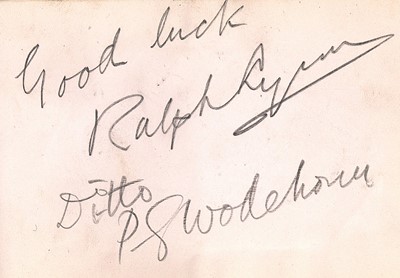 Good luck
Ralph Lynn
Ditto
P G Wodehouse